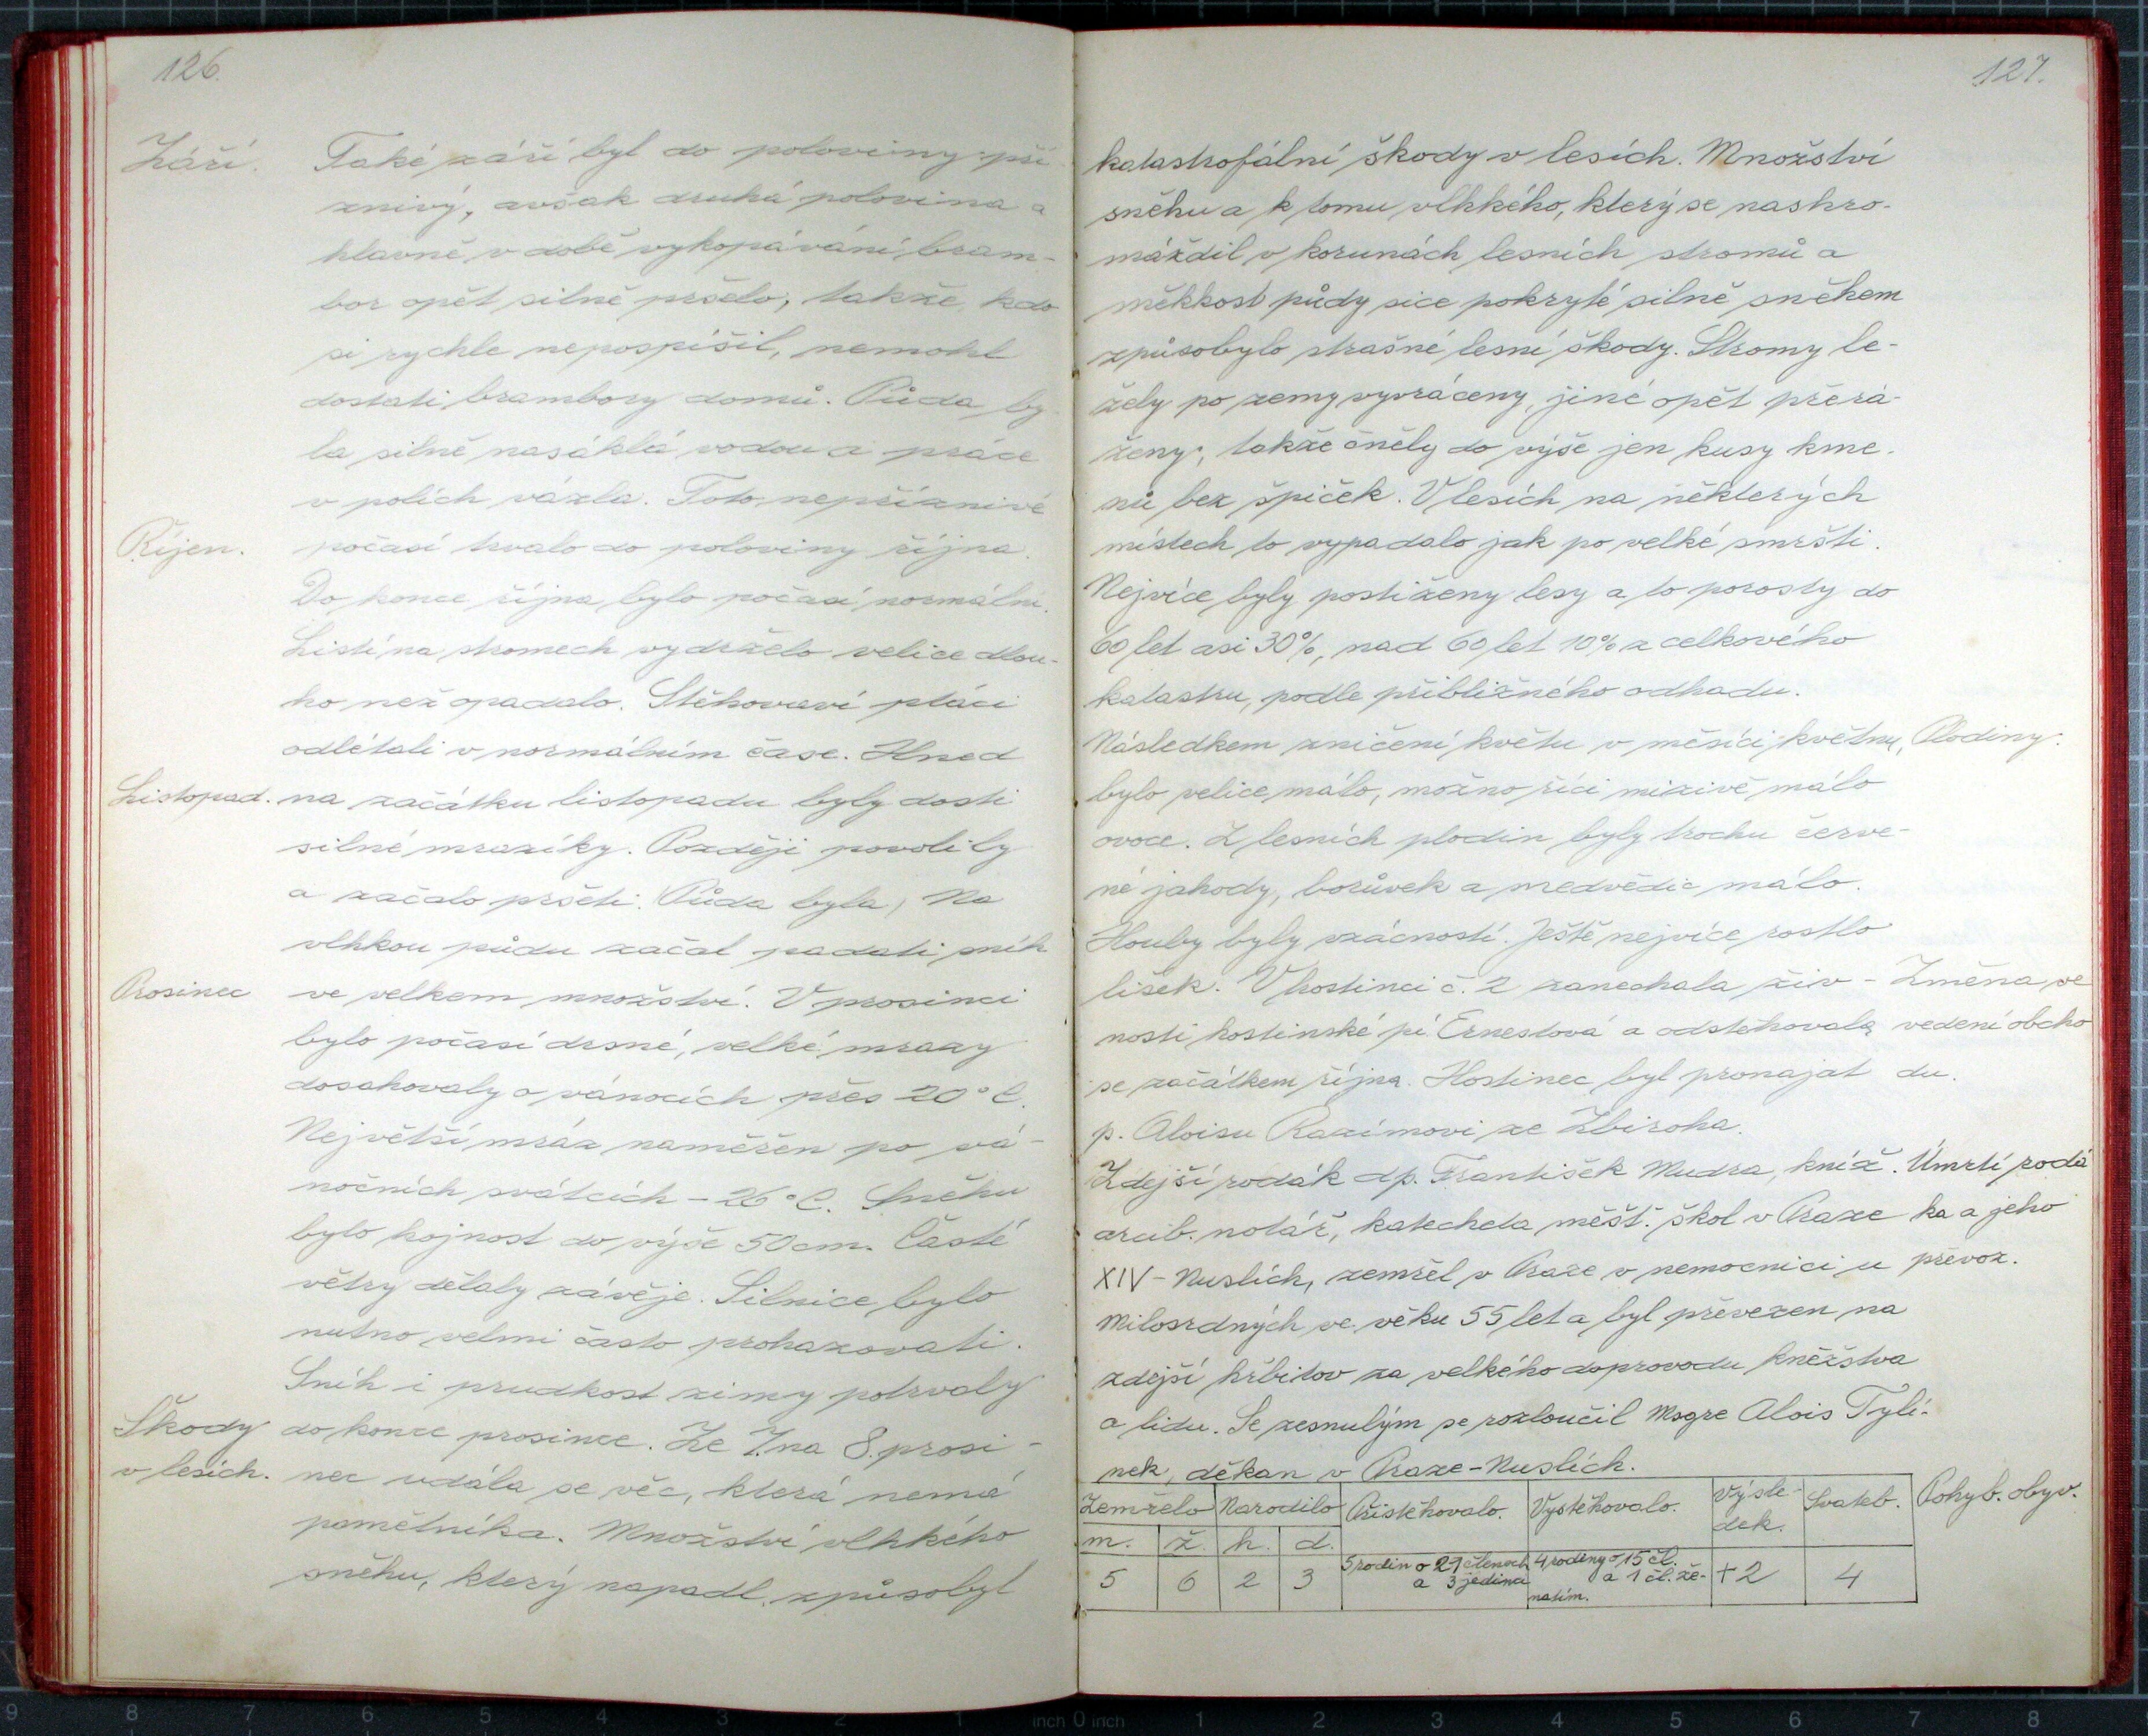 126.
Září. Také září byl do poloviny pří-
znivý, avšak druhá polovina a
hlavně v době vykopávání bram-
bor opět silně pršelo, takže, kdo
si rychle nepospíšil, nemohl
dostati brambory domů. Půda by-
la silně nasáklá vodou a práce
v polích vázla. Toto nepříznivé
Říjen. počasí trvalo do poloviny října.
Do konce října bylo počasí normální.
Listí na stromech vydrželo velice dlou-
ho než opadalo. Stěhovaví ptáci
odlétali v normálním čase. Hned
Listopad. na začátku listopadu byly dosti
silné mrazíky. Později povolily
a začalo pršeti. Půda byla, Na
vlhkou půdu začal padati sníh
Prosinec ve velkem množství. V prosinci
bylo počasí drsné, velké mrazy
dosahovaly o vánocích přes 20°C.
Největší mráz naměřen po vá-
nočních svátcích - 26°C. Sněhu
bylo hojnost do výše 50 cm. Časté
větry dělaly závěje. Silnice bylo
nutno velmi často prohazovati.
Sníh i prudkost zimy potrvaly
Škody do konce prosince. Ze 7. na 8. prosi-
v lesích. nec udála se věc, která nemá
pamětníka. Množství vlhkého
sněhu, který napadl, způsobyl
127.
katastrofální škody v lesích. Množství
sněhu a k tomu vlhkého, který se nashro-
máždil v korunách lesních stromů a
měkkost půdy sice pokryté silně sněhem
způsobylo strašné lesní škody. Stromy le-
žely po zemy vyvráceny, jiné opět přerá-
ženy, takže čněly do výše jen kusy kme-
nů bez špiček. V lesích na některých
místech to vypadalo jak po velké smršti.
Nejvíce byly postiženy lesy a to porosty do
60 let asi 30%, nad 60 let 10% z celkového
katastru, podle přibližného odhadu.
Následkem zničení květu v měsíci květnu, Plodiny.
bylo velice málo, možno říci mizivě málo
ovoce. Z lesních plodin byly trochu červe-
né jahody, borůvek a medvědic málo.
Houby byly vzácností. Ještě nejvíce rostlo
lišek. V hostinci č. 2 zanechala živ- Změna ve
nosti hostinské pí Ernestová a odstěhovala vedení obcho
se začátkem října. Hostinec byl pronajat du.
p. Aloisu Razímovi ze Zbiroha.
Zdejší rodák dp. František Mudra, kníž. Úmrtí rodá
arcib. notář, katecheta měšť. škol v Praze ka a jeho
XIV - Nuslích, zemřel v Praze v nemocnici u převoz.
Milosrdných ve věku 55 let a byl převezen na
zdejší hřbitov za velkého doprovodu kněžstva
a lidu. Se zesnulým se rozloučil Msgre Alois Tyli-
nek, děkan v Praze-Nuslích.
Zemřelo Narodilo Přistěhovalo. Vystěhovalo. Výsle-dek. Svateb. Pohyb. obyv.
m. ž. h. d.
5 6 2 3 5 rodin o 21 členech a 3 jedinci 4 rodiny o 15 čl. a 1 čl. že-natím. +2 4